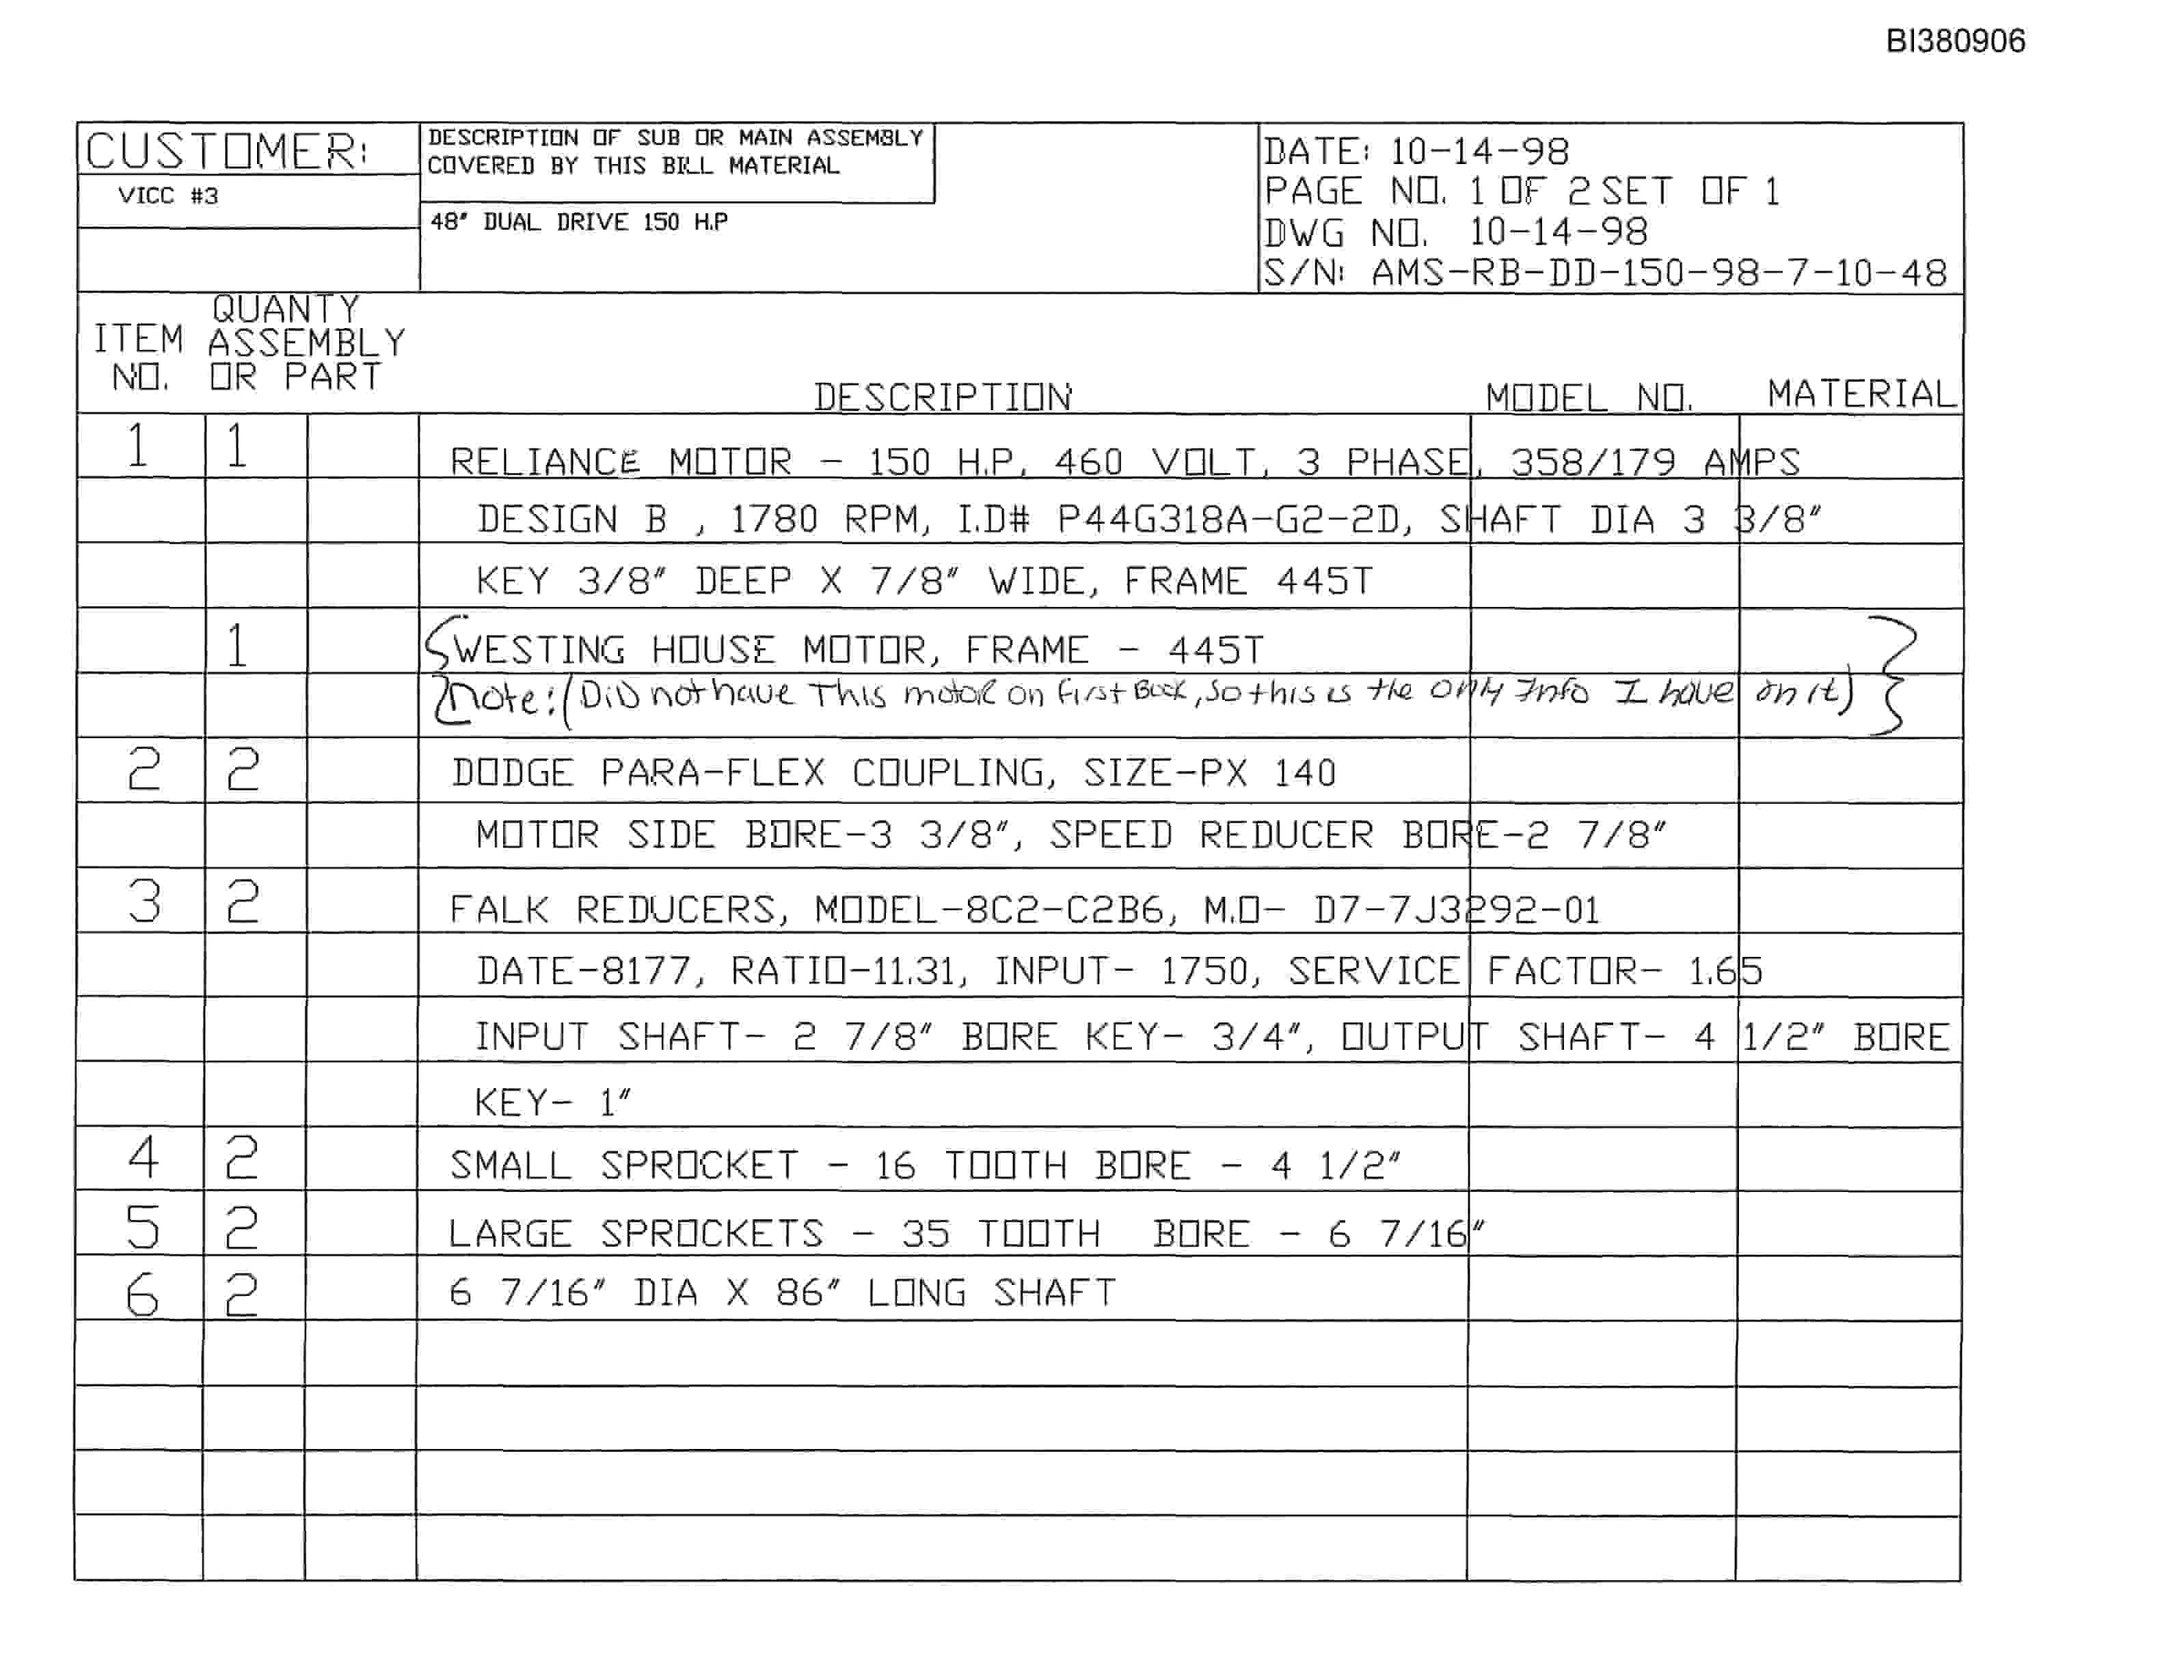 BI380906
CUSTOMER:
VICC #3
DESCRIPTION OF SUB OR MAIN ASSEMBLY
COVERED BY THIS BILL MATERIAL
48" DUAL DRIVE 150 H.P
DATE: 10-14-98
PAGE NO. 1 OF 2 SET OF 1
DWG NO. 10-14-98
S/N: AMS-RB-DD-150-98-7-10-48
ITEM NO.
QUANTY ASSEMBLY OR PART
DESCRIPTION MODEL NO. MATERIAL
1 1 RELIANCE MOTOR - 150 H.P, 460 VOLT, 3 PHASE, 358/179 AMPS
DESIGN B , 1780 RPM, I.D# P44G318A-G2-2D, SHAFT DIA 3 3/8"
KEY 3/8" DEEP X 7/8" WIDE, FRAME 445T
1 WESTING HOUSE MOTOR, FRAME - 445T
Note: (Did not have This motor on first Book, So this is the only Info I have on it)
2 2 DODGE PARA-FLEX COUPLING, SIZE-PX 140
MOTOR SIDE BORE-3 3/8", SPEED REDUCER BORE-2 7/8"
3 2 FALK REDUCERS, MODEL-8C2-C2B6, M.O- D7-7J3292-01
DATE-8177, RATIO-11.31, INPUT- 1750, SERVICE FACTOR- 1.65
INPUT SHAFT- 2 7/8" BORE KEY- 3/4", OUTPUT SHAFT- 4 1/2" BORE
KEY- 1"
4 2 SMALL SPROCKET - 16 TOOTH BORE - 4 1/2"
5 2 LARGE SPROCKETS - 35 TOOTH BORE - 6 7/16"
6 2 6 7/16" DIA X 86" LONG SHAFT